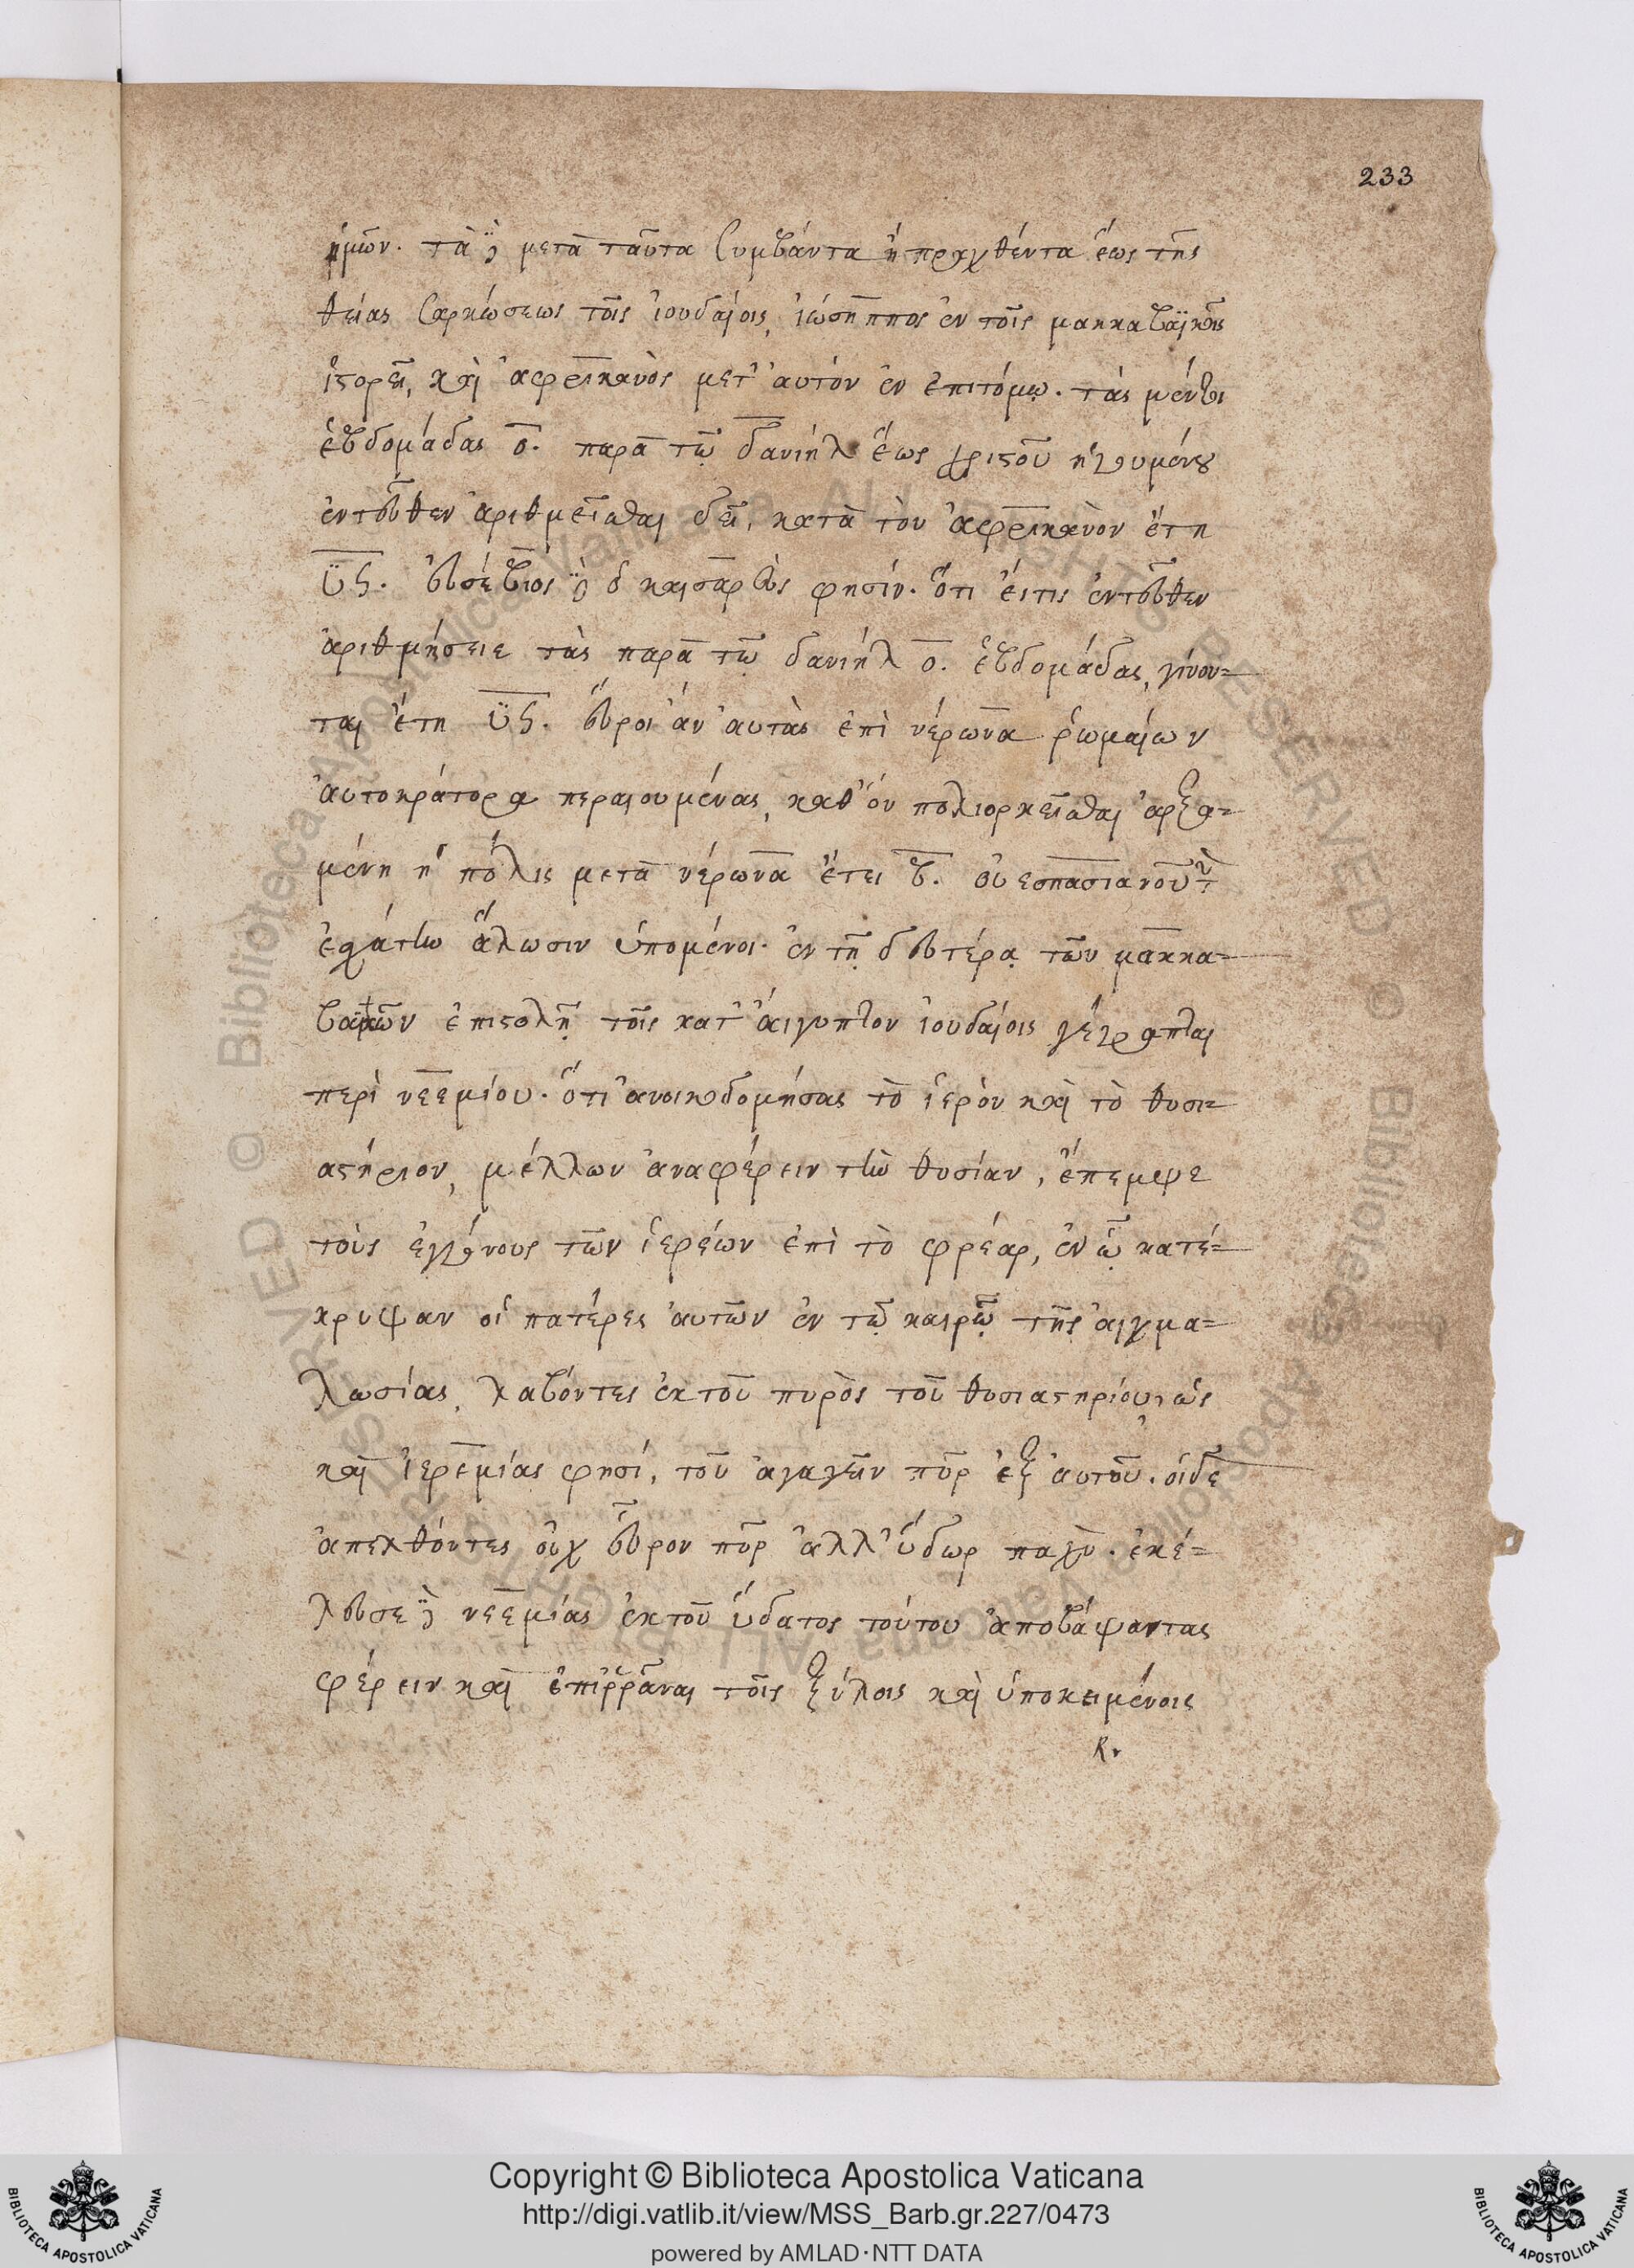 233
ἡμῶν. τὰ δὲ μετὰ ταῦτα συμβάντα ἢ πραχθέντα ἕως τῆς
θείας σαρκώσεως τοῖς ἰουδαίοις, ἰώσηππος ἐν τοῖς μακκαβαϊκοῖς
ἱστορεῖ, καὶ ἀφρικανὸς μετ' αὐτόν ἐν ἐπιτόμῳ. τάς μέντοι
ἑβδομάδας ο. παρὰ τῷ δανιὴλ ἕως χριστοῦ ἡγουμένου
ἐντεῦθεν ἀριθμεῖσθαι δεῖ, κατὰ τὸν ἀφρικανὸν ἔτη
υϟ. εὐσέβιος δὲ ὁ καισαρεὺς φησίν. ὅτι εἴτις ἐντεῦθεν
ἀριθμήσειε τὰς παρὰ τῷ δανιὴλ ο. ἑβδομάδας, γίνον=
ται ἔτη υϟ. εὕροι ἂν αὐτὰς ἐπὶ νέρωνα ῥωμαίων
αὐτοκράτορα περαιουμένας, καθ' ὅν πολιορκεῖσθαι ἀρξα=
μένη ἡ πόλις μετὰ νέρωνα ἔτει β. οὐεσπασιανοῦ τὴν
ἐσχάτην ἅλωσιν ὑπομένει. ἐν τῇ δευτέρᾳ τῶν μακκα=
βαϊκῶν ἐπιστολῇ τοῖς κατ' αἴγυπτον ἰουδαίοις γέγραπται
περὶ νεεμίου. ὅτι ἀνοικοδομήσας τὸ ἱερὸν καὶ τὸ θυσι=
αστήριον, μέλλων ἀναφέρειν τὴν θυσίαν, ἔπεμψε
τοὺς ἐγγόνους τῶν ἱερέων ἐπὶ τὸ φρέαρ, ἐν ᾧ κατέ=
κρυψαν οἱ πατέρες αὐτῶν ἐν τῷ καιρῷ τῆς αἰχμα=
λωσίας, λαβόντες ἐκ τοῦ πυρὸς τοῦ θυσιαστηρίου, ὡς
καὶ ἱερεμίας φησί, τοῦ ἀγαγεῖν πῦρ ἐξ αὐτοῦ. οἱ δὲ
ἀπελθόντες οὐχ εὗρον πῦρ ἀλλ' ὕδωρ παχὺ. ἐκέ=
λευσε δὲ νεεμίας ἐκ τοῦ ὕδατος τούτου ἀποβάψαντας
φέρειν καὶ ἐπιρρᾶναι τοῖς ξύλοις καὶ ὑποκειμένοις
Copyright © Biblioteca Apostolica Vaticana
http://digi.vatlib.it/view/MSS_Barb.gr.227/0473
powered by AMLAD·NTT DATA
BIBLIOTECA APOSTOLICA VATICANA
BIBLIOTECA APOSTOLICA VATICANA